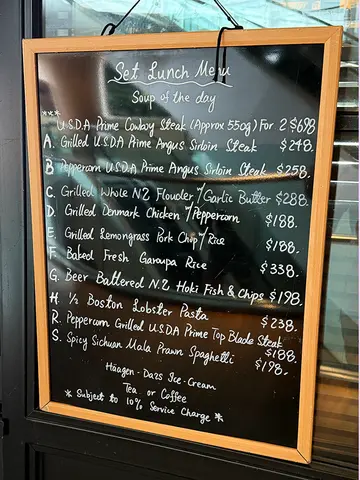 Set Lunch Menu
Soup of the day
***
U.S.D.A Prime Cowboy Steak (Approx 550g) For 2 $698
A. Grilled U.S.D.A Prime Angus Sirloin Steak $248.
B Peppercorn U.S.D.A Prime Angus Sirloin Steak $258.
C. Grilled Whole N.Z Flounder w/Garlic Butter $288.
D. Grilled Denmark Chicken w/Peppercorn $188.
E. Grilled Lemongrass Pork Chop w/Rice $188.
F. Baked Fresh Garoupa Rice $338.
G. Beer Battered N.Z Hoki Fish & Chips $198.
H. ½ Boston Lobster Pasta $238.
R. Peppercorn Grilled U.S.D.A Prime Top Blade Steak $188.
S. Spicy Sichuan Mala Prawn Spaghetti $198.
Häagen-Dazs Ice-Cream
Tea or Coffee
* Subject to 10% Service Charge *